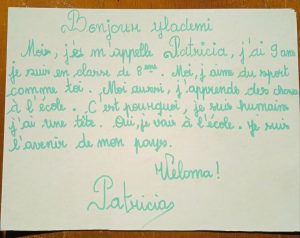 Bonjour ylademi
Moi, je m'appelle Patricia, j'ai 9 ans
je suis en classe de 8ème. Moi, j'aime du sport
comme toi. Moi aussi, j'apprends des choses
à l'école. C'est pourquoi, je suis humain
j'ai une tête. Oui, je vais à l'école. je suis
l'avenir de mon pays.
Veloma!
Patricia